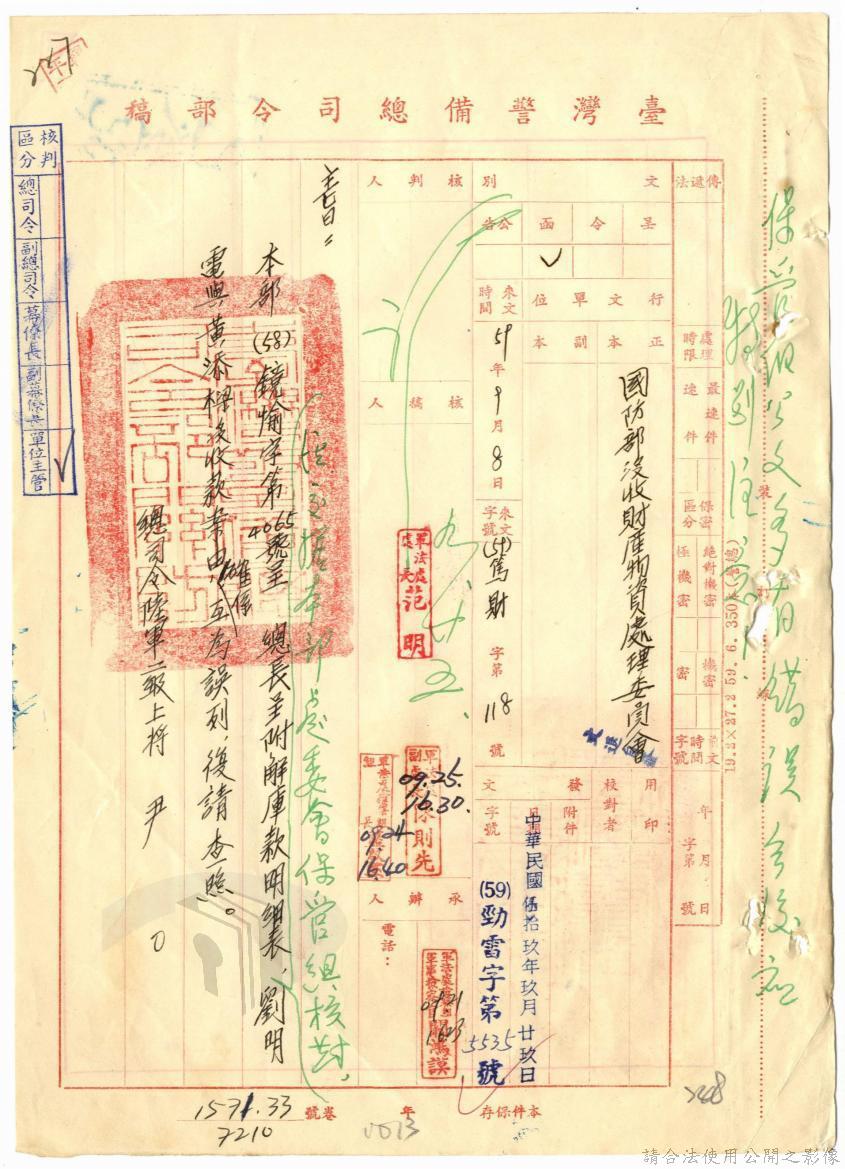 臺灣警備總司令部稿
保管組公文多有錯誤會後應
特別注意
傳遞法
處理時限
最速件
速件
保密區分
絕對機密
極機密
機密
密
前文時間字號
年 月 日
字第 號
19.2×27.2 59. 6. 350本(富總)
裝
訂
線
文別
呈
令
函
公告
✓
行文單位
正本
副本
國防部沒收財產物資處理委員會
來文時間
59年9月8日
來文字號
(59)篤財字第118號
用印
校對者
發文
附件
日期
字號
中華民國伍拾玖年玖月廿玖日
(59)勁雷字第5535號
核判人
核稿人
九、廿五、
軍法處處長范明
09.25.
16.30.
09.24
16.40
承辦人
電話:
09.21
主旨:
本部(58)鏡愉字第4065號呈 總長呈附解庫款明細表,劉明
電與黃添樑沒收款案由,確係互為誤列,復請查照。
據本部處委會保管組核對,
總司令陸軍二級上將 尹
核判區分
總司令
副總司令
幕僚長
副幕僚長
單位主管
✓
1571.33
7210
卷號
年
本件保存
請合法使用公開之影像